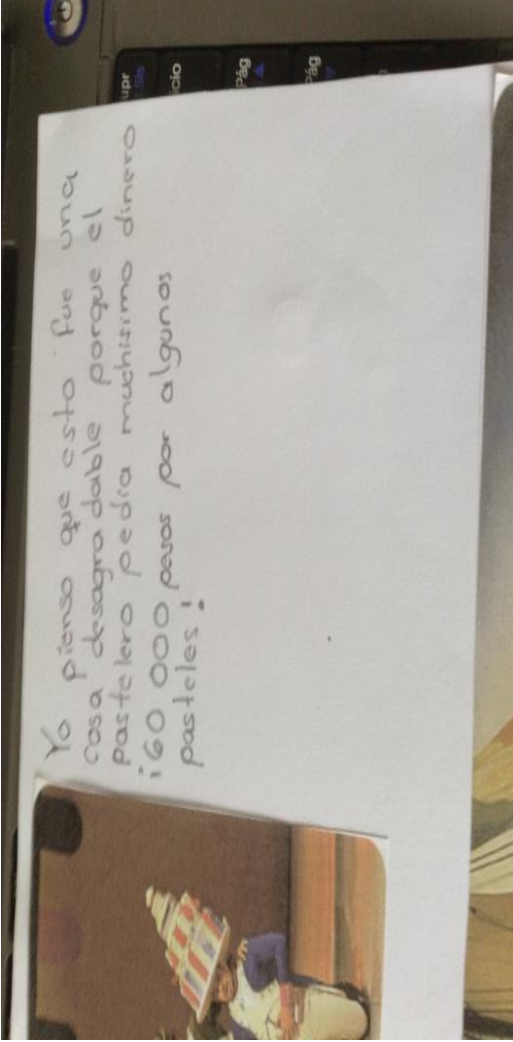 Yo pienso que esto fue una
cosa desagradable porque el
pastelero pedía muchisimo dinero
¡60 000 pesos por algunos
pasteles!
upr
Sis
icio
Pág
Pág